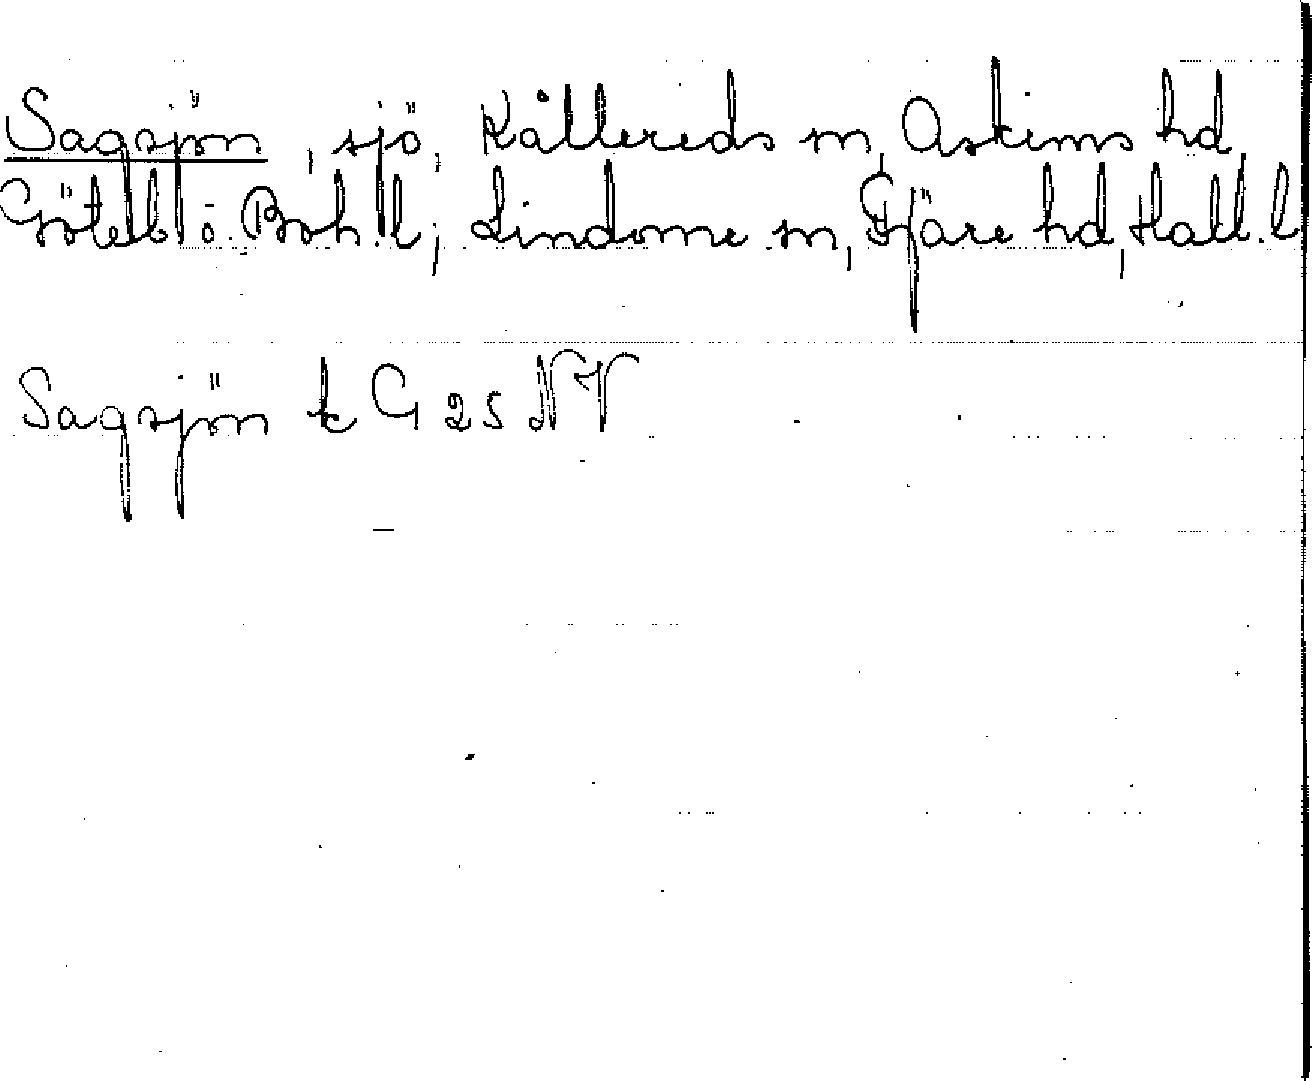 Sagsjön, sjö, Kållereds sn, Askims hd,
Göteb. o. Boh. l; Lindome sn, Fjäre hd, Hall. l
Sagsjön tc G 25 NV